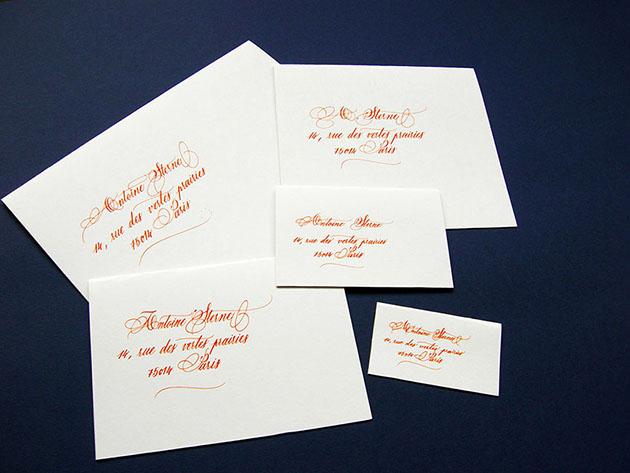 Antoine Sterne
14, rue des vertes prairies
75014 Paris
A. Sterne
14, rue des vertes prairies
75014 Paris
Antoine Sterne
14, rue des vertes prairies
75014 Paris
Antoine Sterne
14, rue des vertes prairies
75014 Paris
Antoine Sterne
14, rue des vertes prairies
75014 Paris